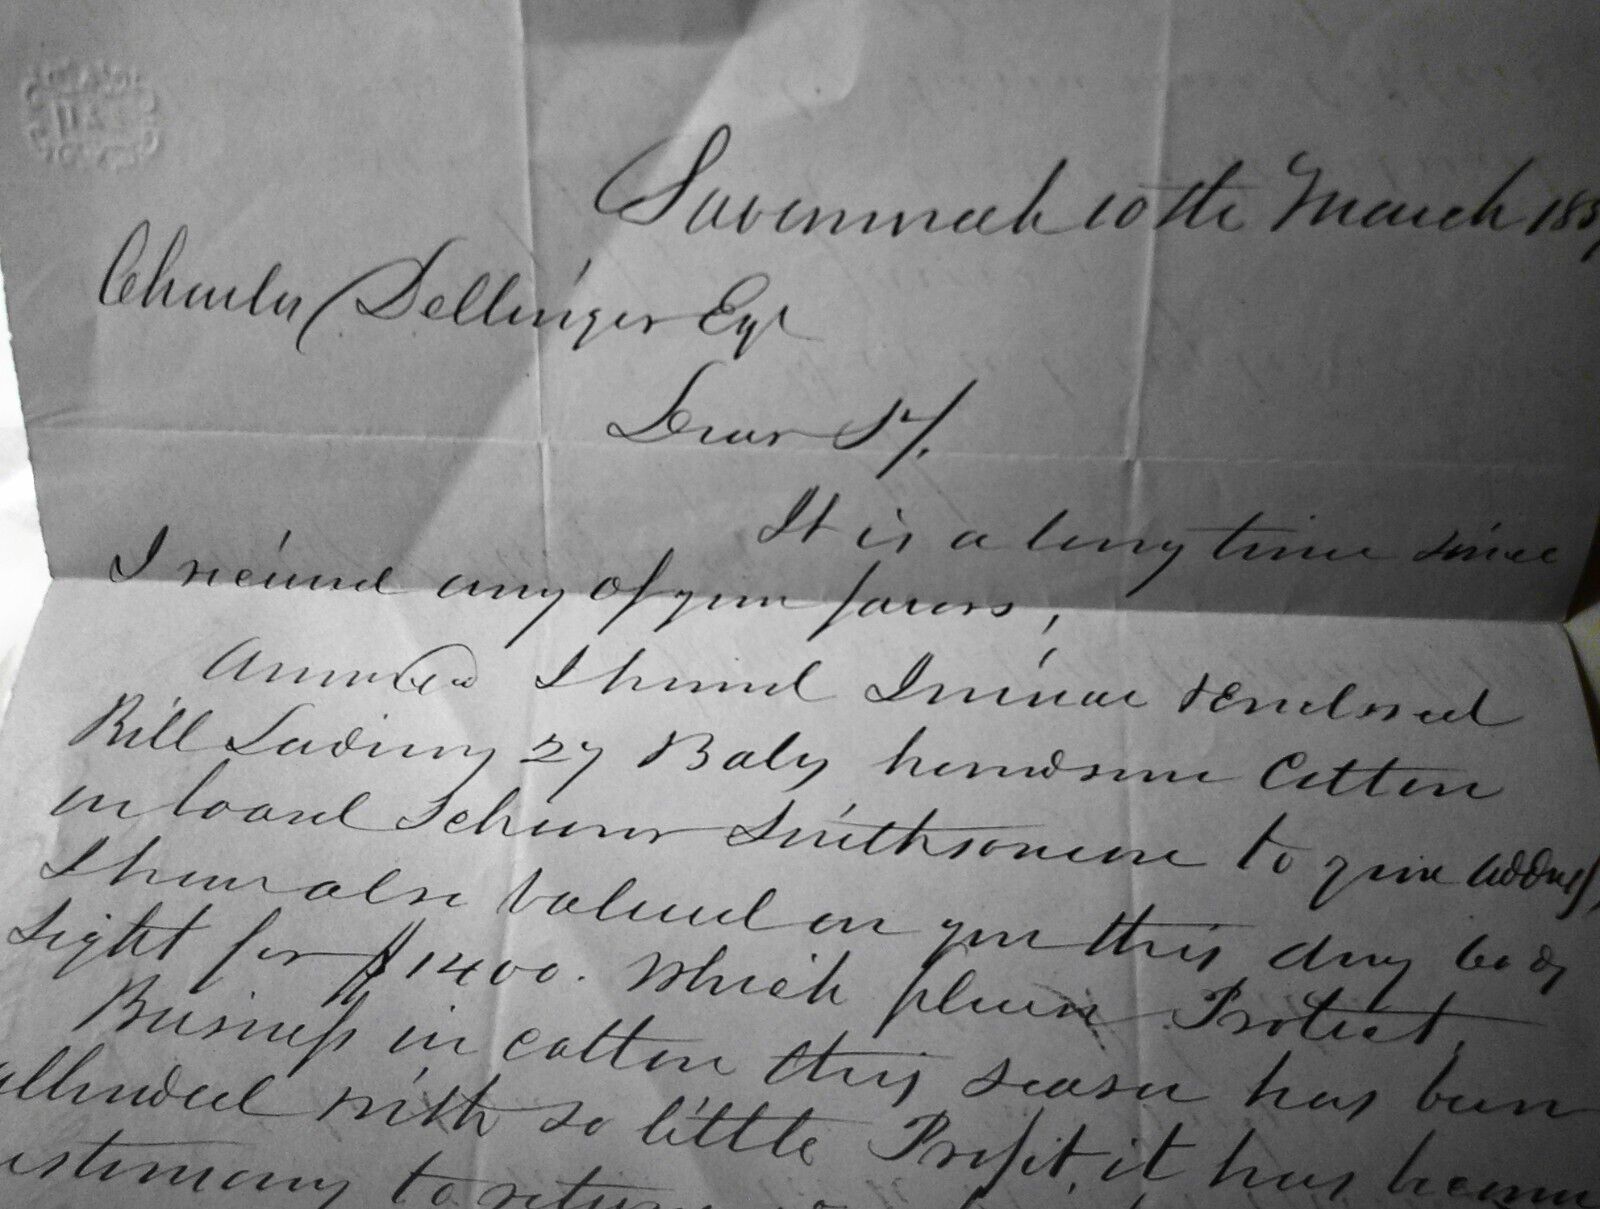 Savannah 10th March 185
Charles Dellinger Eqr
Dear Sr,
It is a long time since
I received any of your favors,
Annexed I hand Invoice & Enclosed
Bill Lading 27 Bales handsome Cotton
on board Schooner Smithsonian to your address,
I have also valued on you this day 60 dy
Sight for $1400. Which please Protect,
Business in cotton this season has been
attended with so little Profit, it has become
to return